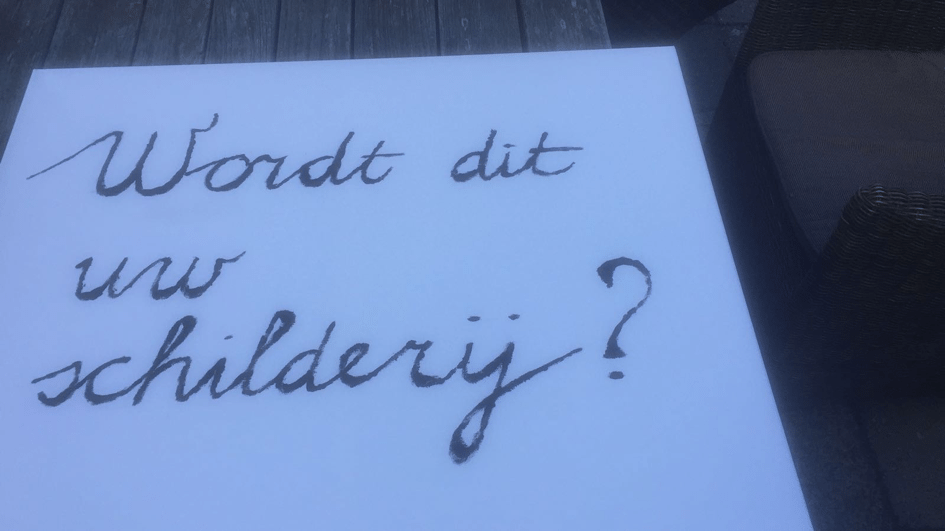 Wordt dit
uw
schilderij?